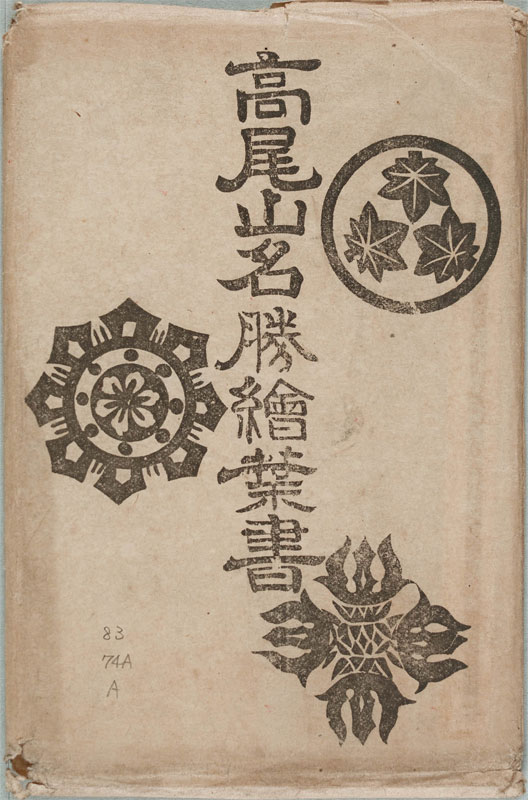 高尾山名勝繪葉書
83
74A
A